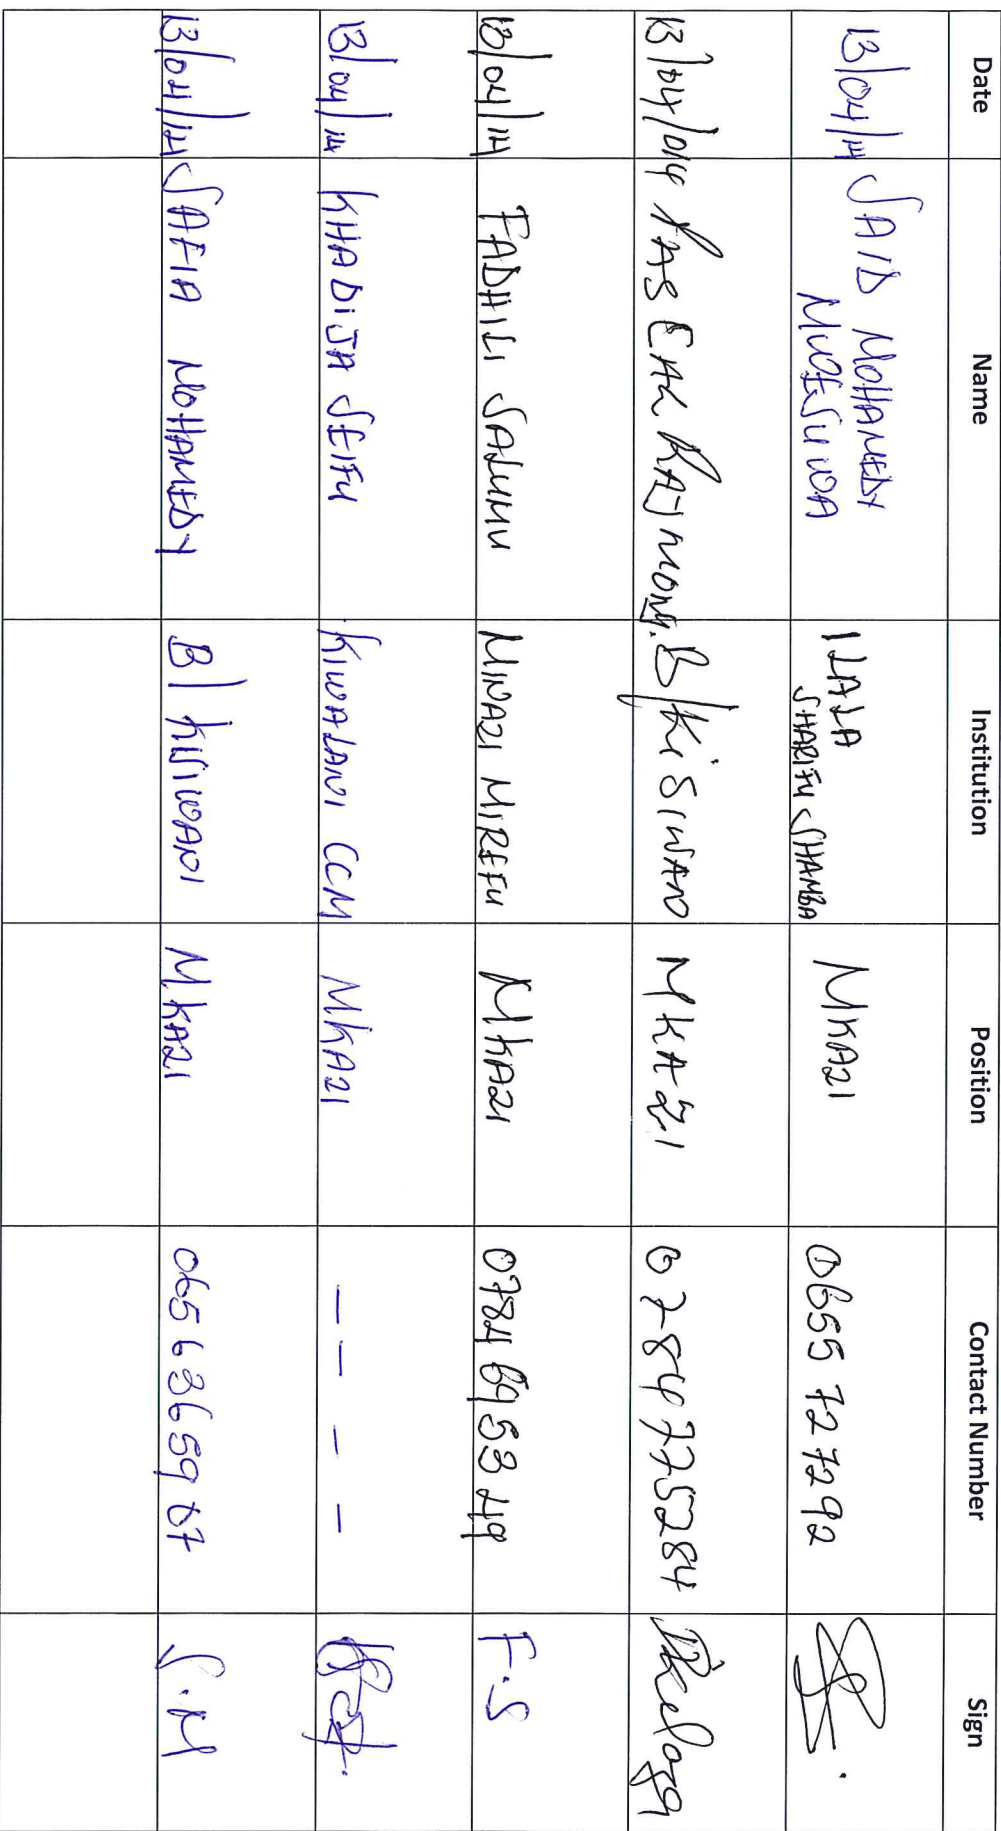 Date Name Institution Position Contact Number Sign
13/04/14 SAID MOHAMEDY ILALA MKAZI 0655 727292
SHARIFU SHAMBA
13/04/014 RAYMOND. B/KISIWANI MKAZI 0784775284
13/04/14 FADHILI SALUMU MNAZI MIREFU MKAZI 0784 695349 F.S
13/04/14 KHADIJA SEIFU KIWALANI CCM MKAZI - - - -
13/04/14 SAFIA MOHAMEDY B/ KISIWANI MKAZI 0656365967 S.M